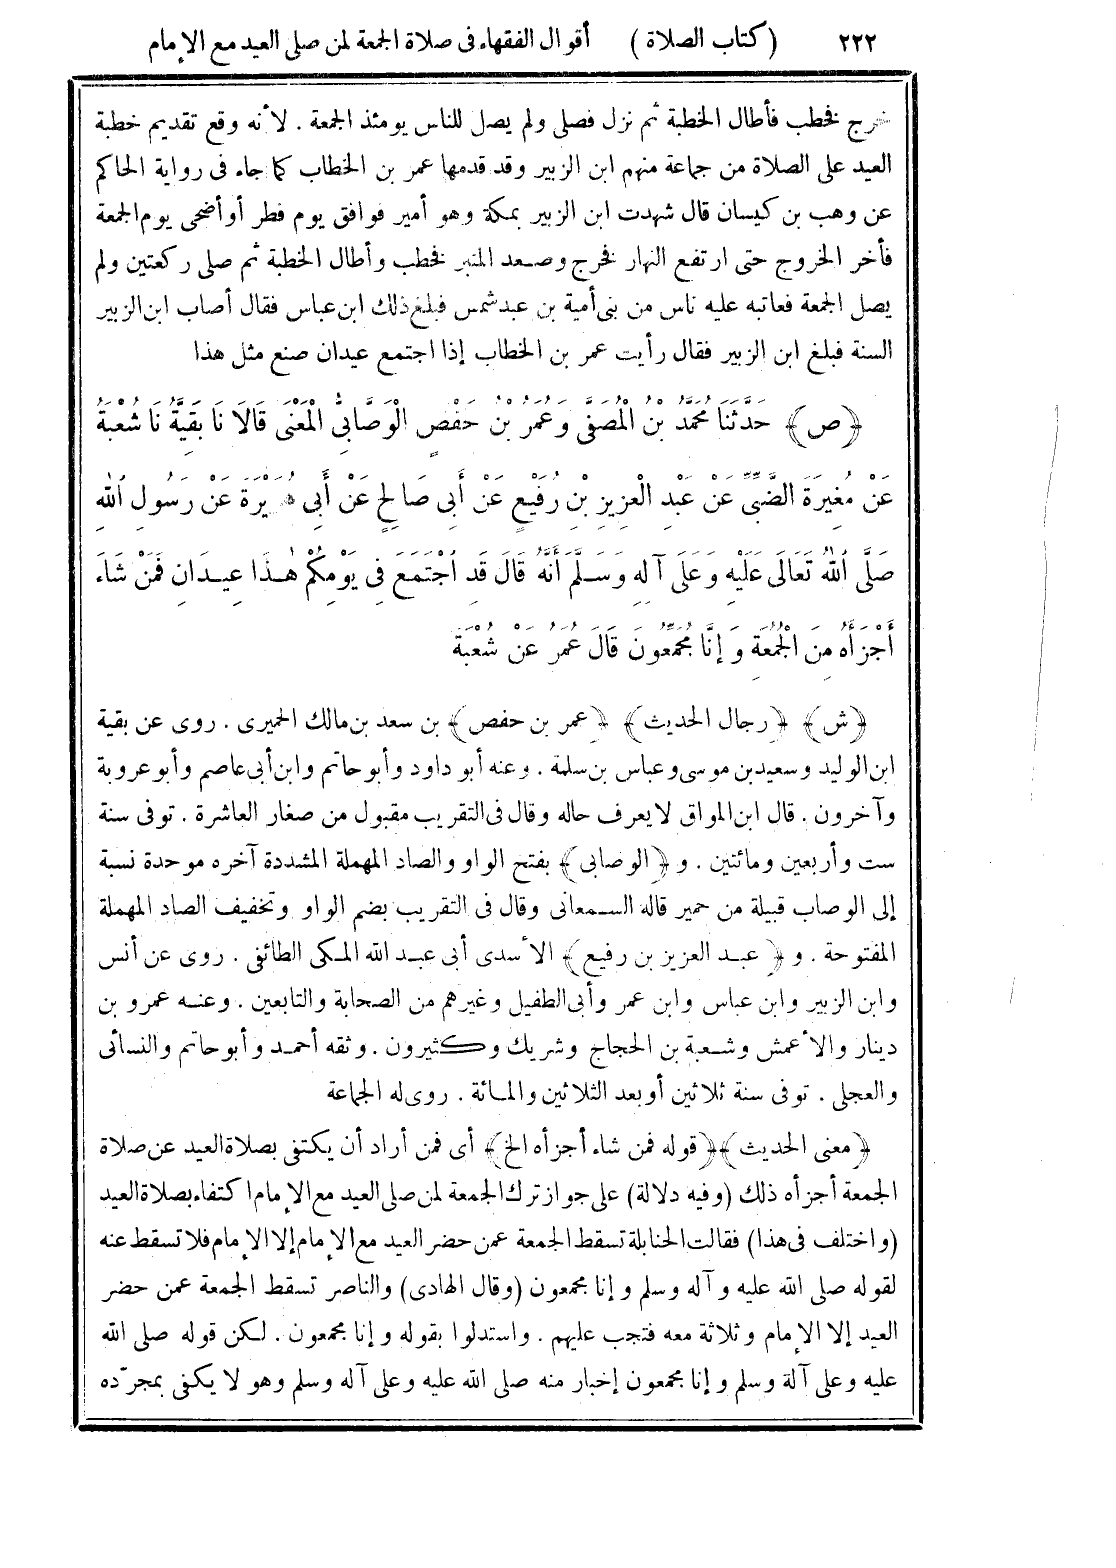 ٢٢٢ (كتاب الصلاة) أقوال الفقهاء فى صلاة الجمعة لمن صلى العيد مع الإمام
خرج فخطب فأطال الخطبة ثم نزل فصلى ولم يصل للناس يومئذ الجمعة . لأنه وقع تقديم خطبة
العيد على الصلاة من جماعة منهم ابن الزبير وقد قدمها عمر بن الخطاب كما جاء فى رواية الحاكم
عن وهب بن كيسان قال شهدت ابن الزبير بمكة وهو أمير فوافق يوم فطر أو أضحى يوم الجمعة
فأخر الخروج حتى ارتفع النهار فخرج وصعد المنبر فخطب وأطال الخطبة ثم صلى ركعتين ولم
يصل الجمعة فعاتبه عليه ناس من بنى أمية بن عبد شمس فبلغ ذلك ابن عباس فقال أصاب ابن الزبير
السنة فبلغ ابن الزبير فقال رأيت عمر بن الخطاب إذا اجتمع عيدان صنع مثل هذا
﴿ص﴾ حَدَّثَنَا مُحَمَّدُ بْنُ الْمُصَفَّى وَعُمَرُ بْنُ حَفْصٍ الْوَصَّابِيُّ الْمَعْنَى قَالَا نَا بَقِيَّةُ نَا شُعْبَةُ
عَنْ مُغِيرَةَ الضَّبِّيِّ عَنْ عَبْدِ الْعَزِيزِ بْنِ رُفَيْعٍ عَنْ أَبِى صَالِحٍ عَنْ أَبِى هُرَيْرَةَ عَنْ رَسُولِ اللهِ
صَلَّى اللهُ تَعَالَى عَلَيْهِ وَعَلَى آلِهِ وَسَلَّمَ أَنَّهُ قَالَ قَدِ اجْتَمَعَ فِى يَوْمِكُمْ هٰذَا عِيدَانِ فَمَنْ شَاءَ
أَجْزَأَهُ مِنَ الْجُمُعَةِ وَإِنَّا مُجَمِّعُونَ قَالَ عُمَرُ عَنْ شُعْبَةَ
﴿ش﴾ ﴿رجال الحديث﴾ ﴿عمر بن حفص﴾ بن سعد بن مالك الحميرى . روى عن بقية
ابن الوليد وسعيد بن موسى وعباس بن سلمة . وعنه أبو داود وأبو حاتم وابن أبى عاصم وأبو عروبة
وآخرون . قال ابن المواق لا يعرف حاله وقال فى التقريب مقبول من صغار العاشرة . توفى سنة
ست وأربعين ومائتين . و ﴿الوصابى﴾ بفتح الواو والصاد المهملة المشددة آخره موحدة نسبة
إلى الوصاب قبيلة من حمير قاله السمعانى وقال فى التقريب بضم الواو وتخفيف الصاد المهملة
المفتوحة . و ﴿عبد العزيز بن رفيع﴾ الأسدى أبى عبد الله المكى الطائفى . روى عن أنس
وابن الزبير وابن عباس وابن عمر وأبى الطفيل وغيرهم من الصحابة والتابعين . وعنه عمرو بن
دينار والأعمش وشعبة بن الحجاج وشريك وكثيرون . وثقه أحمد وأبو حاتم والنسائى
والعجلى . توفى سنة ثلاثين أو بعد الثلاثين والمائة . روى له الجماعة
﴿معنى الحديث﴾ ﴿قوله فمن شاء أجزأه الخ﴾ أى فمن أراد أن يكتفى بصلاة العيد عن صلاة
الجمعة أجزأه ذلك (وفيه دلالة) على جواز ترك الجمعة لمن صلى العيد مع الإمام اكتفاء بصلاة العيد
(واختلف فى هذا) فقالت الحنابلة تسقط الجمعة عمن حضر العيد مع الإمام إلا الإمام فلا تسقط عنه
لقوله صلى الله عليه وآله وسلم وإنا مجمعون (وقال الهادى) والناصر تسقط الجمعة عمن حضر
العيد إلا الإمام وثلاثة معه فتجب عليهم . واستدلوا بقوله وإنا مجمعون . لكن قوله صلى الله
عليه وعلى آلة وسلم وإنا مجمعون إخبار منه صلى الله عليه وعلى آله وسلم وهو لا يكفى بمجرّده